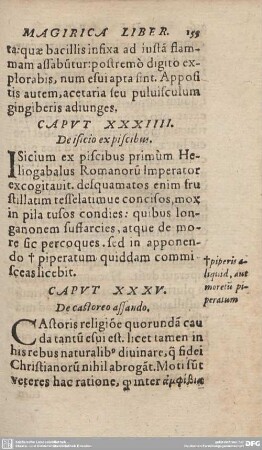 MAGIRICA LIBER. 155
ta: quæ bacillis infixa ad iustã flam-
mam assabũtur: postremò digito ex-
plorabis, num esui apta sint. Apposi
tis autem, acetaria seu puluisculum
gingiberis adiunges.
CAPVT XXXIIII.
De isicio ex piscibus.
ISicium ex piscibus primùm He-
liogabalus Romanorũ Imperator
excogitauit. desquamatos enim fru
stillatim tesselatimue concisos, mox
in pila tusos condies: quibus lon-
ganonem suffarcies, atque de mo-
re sic percoques. sed in apponen-
do † piperatum quiddam commi-
sceas licebit.
† piperis a-
liquid, aut
moretũ pi-
peratum
CAPVT XXXV.
De castoreo assando.
CAstoris religiõe quorundã cau
da tantũ esui est. licet tamen in
his rebus naturalibꝰ diuinare, ꝙ fidei
Christianorũ nihil abrogãt. Moti sũt
veteres hac ratione, ꝙ inter ἀμφίβια